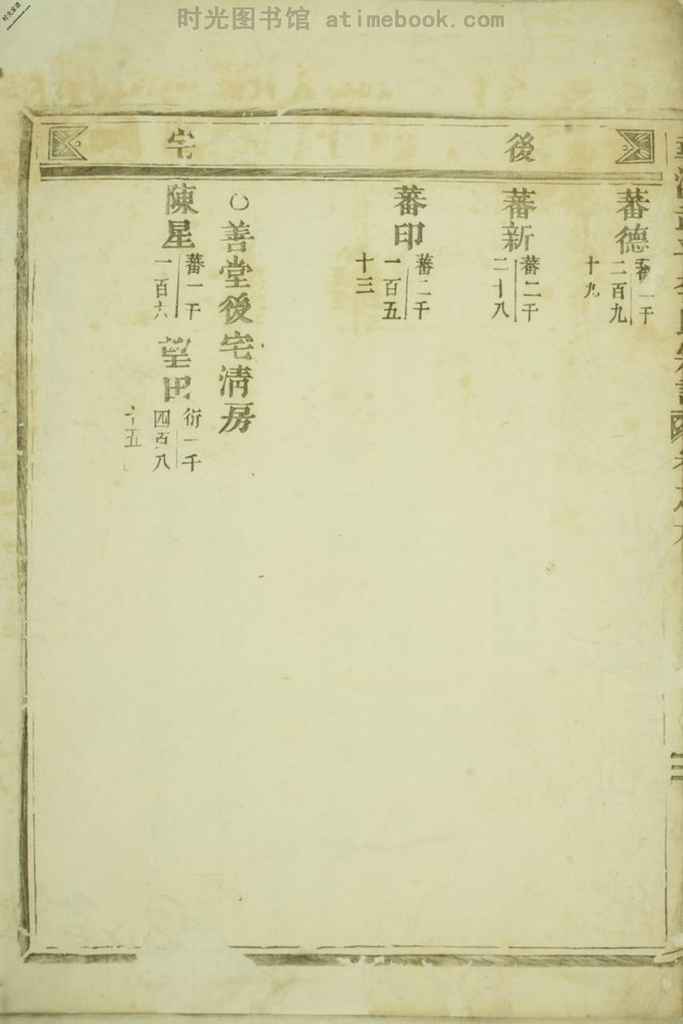 时光图书馆 atimebook.com
後
宅
蕃德
蕃一千
二百九
十九
蕃新
蕃二千
二十八
蕃印
蕃二千
一百五
十三
○善堂後宅清房
陳星
蕃一千
一百六
望田
衍一千
四百八
十五